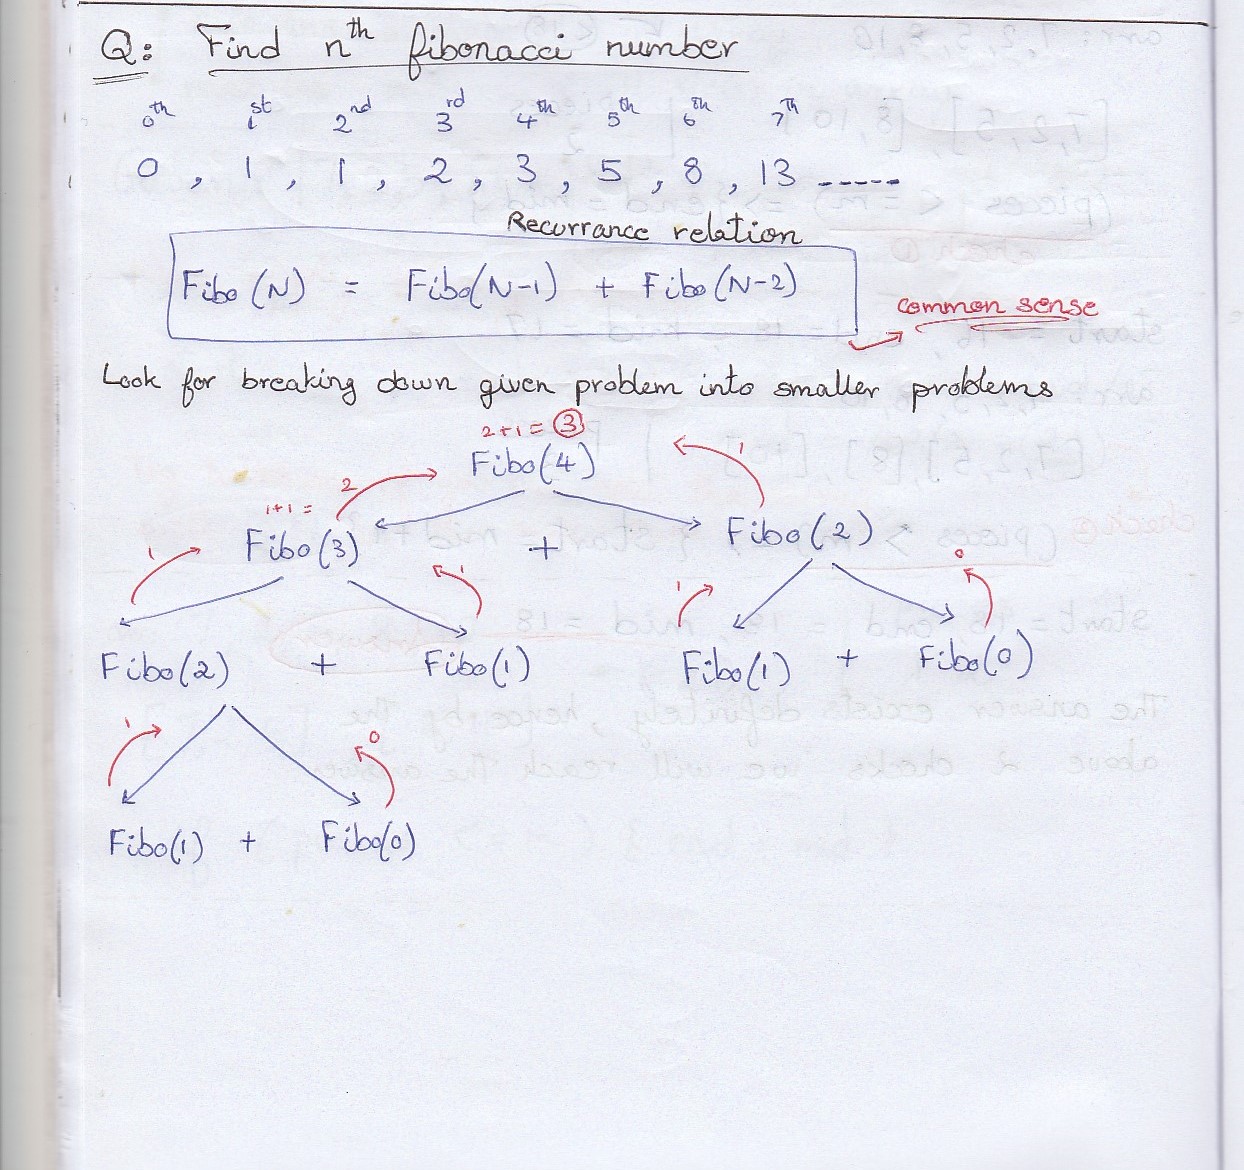 Q: Find nth fibonacci number
0th 1st 2nd 3rd 4th 5th 6th 7th
0 , 1 , 1 , 2 , 3 , 5 , 8 , 13 -----
Recurrance relation
Fibo (N) = Fibo(N-1) + Fibo (N-2)
common sense
Look for breaking down given problem into smaller problems
2+1 = 3
Fibo(4)
2 1
1+1 =
Fibo(3) + Fibo(2)
1 1 1 0
Fibo(2) + Fibo(1) Fibo(1) + Fibo(0)
1 0
Fibo(1) + Fibo(0)